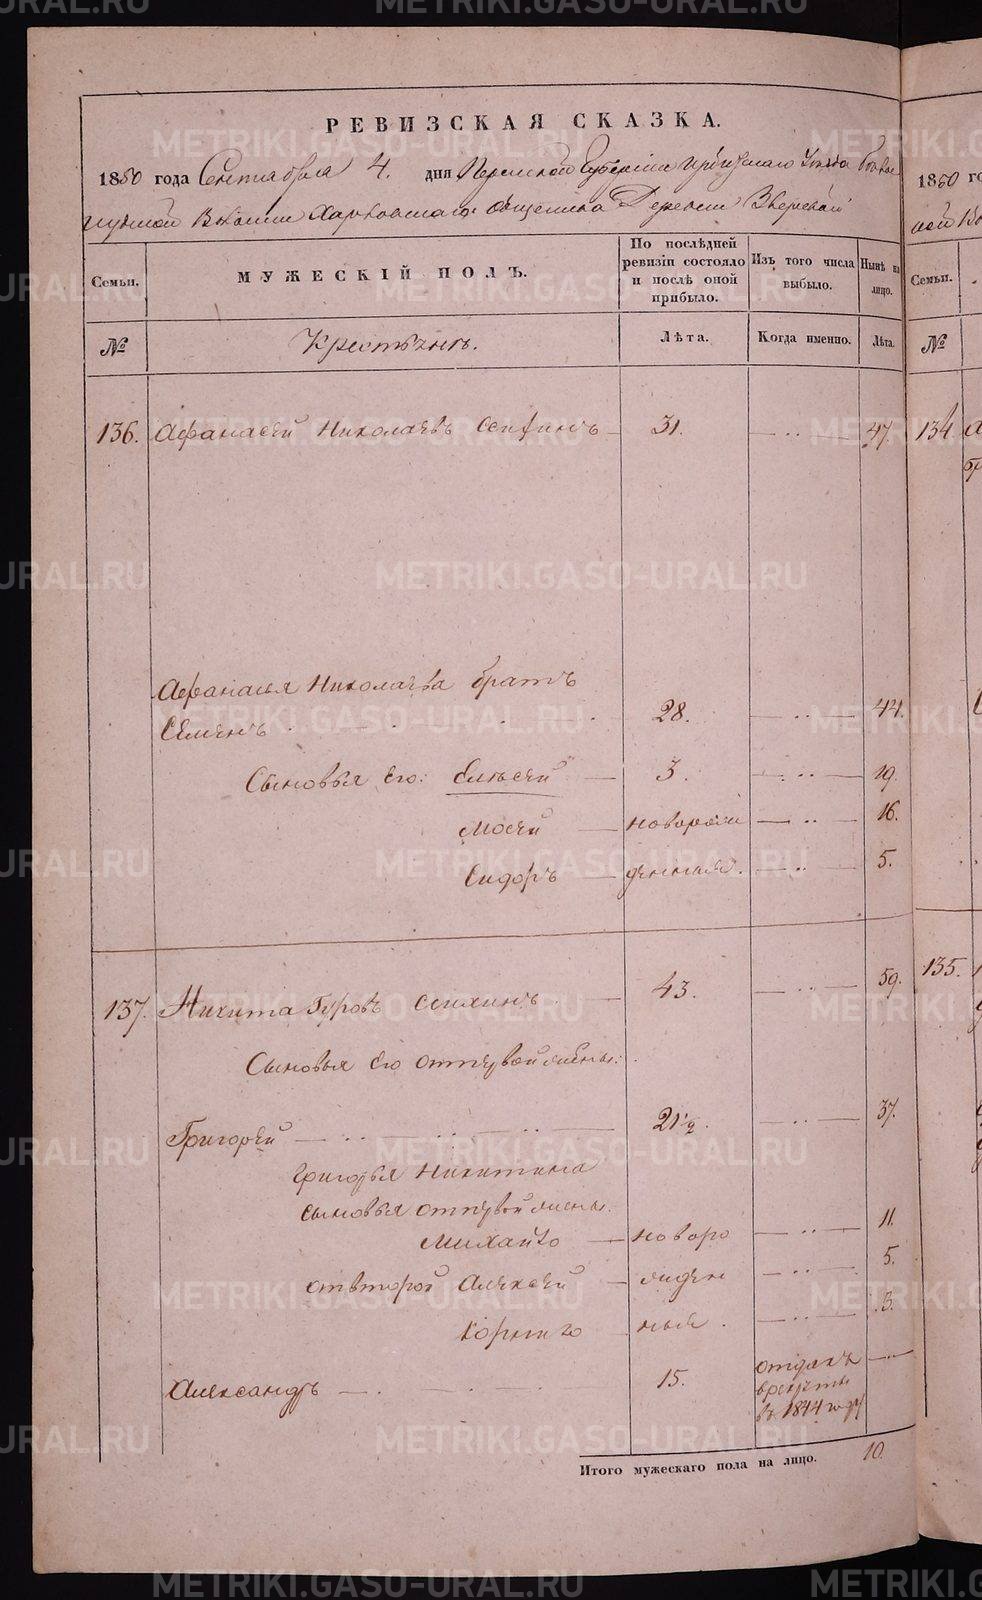 METRIKI.GASO-URAL.RU
РЕВИЗСКАЯ СКАЗКА.
1850 года Сентября 4. дня Пермской Губернiи Ирбитскаго Уѣзда
Волости Харловскаго общества Деревни Зверевой
Семьи. МУЖЕСКIЙ ПОЛЪ. По послѣдней ревизiи состояло и послѣ оной прибыло. Изъ того числа выбыло. Нынѣ на лицо.
№ Крестьянъ. Лѣта. Когда именно. Лѣта.
136. Афанасей Николаевъ 31. 47.
Афанасья Николаева братъ
Семенъ 28. 44.
Сыновья Его: Елисей 3. 19.
Мосей новорож 16.
Сидоръ денныя. 5.
137. Никита Гуровъ 43. 59.
Сыновья Его отпервой жены:
Григорей 21 1/2. 37.
Григорья Никитина
сыновья отпервой жены.
Михайло новоро 11.
отвторой Алексей жден 5.
Корнило ныя. 3.
Александръ 15. отданъ
врекруты
въ 1844 году
Итого мужескаго пола на лицо. 10.
1850 го
Семьи.
№
134.
135.